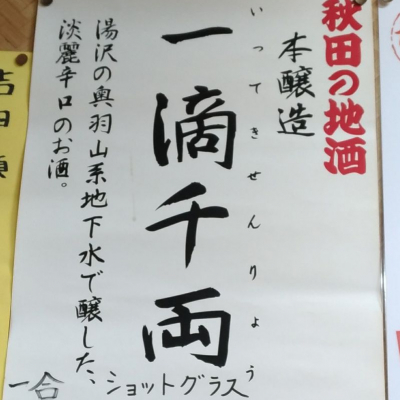 秋田の地酒
本醸造
いってきせんりょう
一滴千両
湯沢の奥羽山系地下水で醸した、
淡麗辛口のお酒。
一合
ショットグラス
吉田